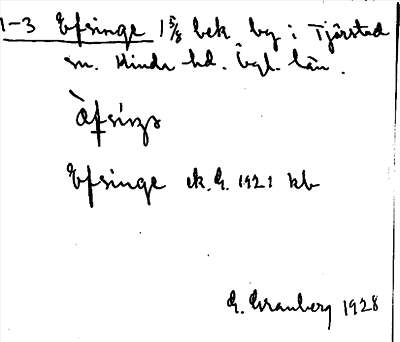 1-3 Efsinge 1 5/8 bek. by i Tjärstad
sn. Kinda hd. Ögl. län.
Äfsinge
Efsinge ek. G. 1921 kb
G. Granberg 1928